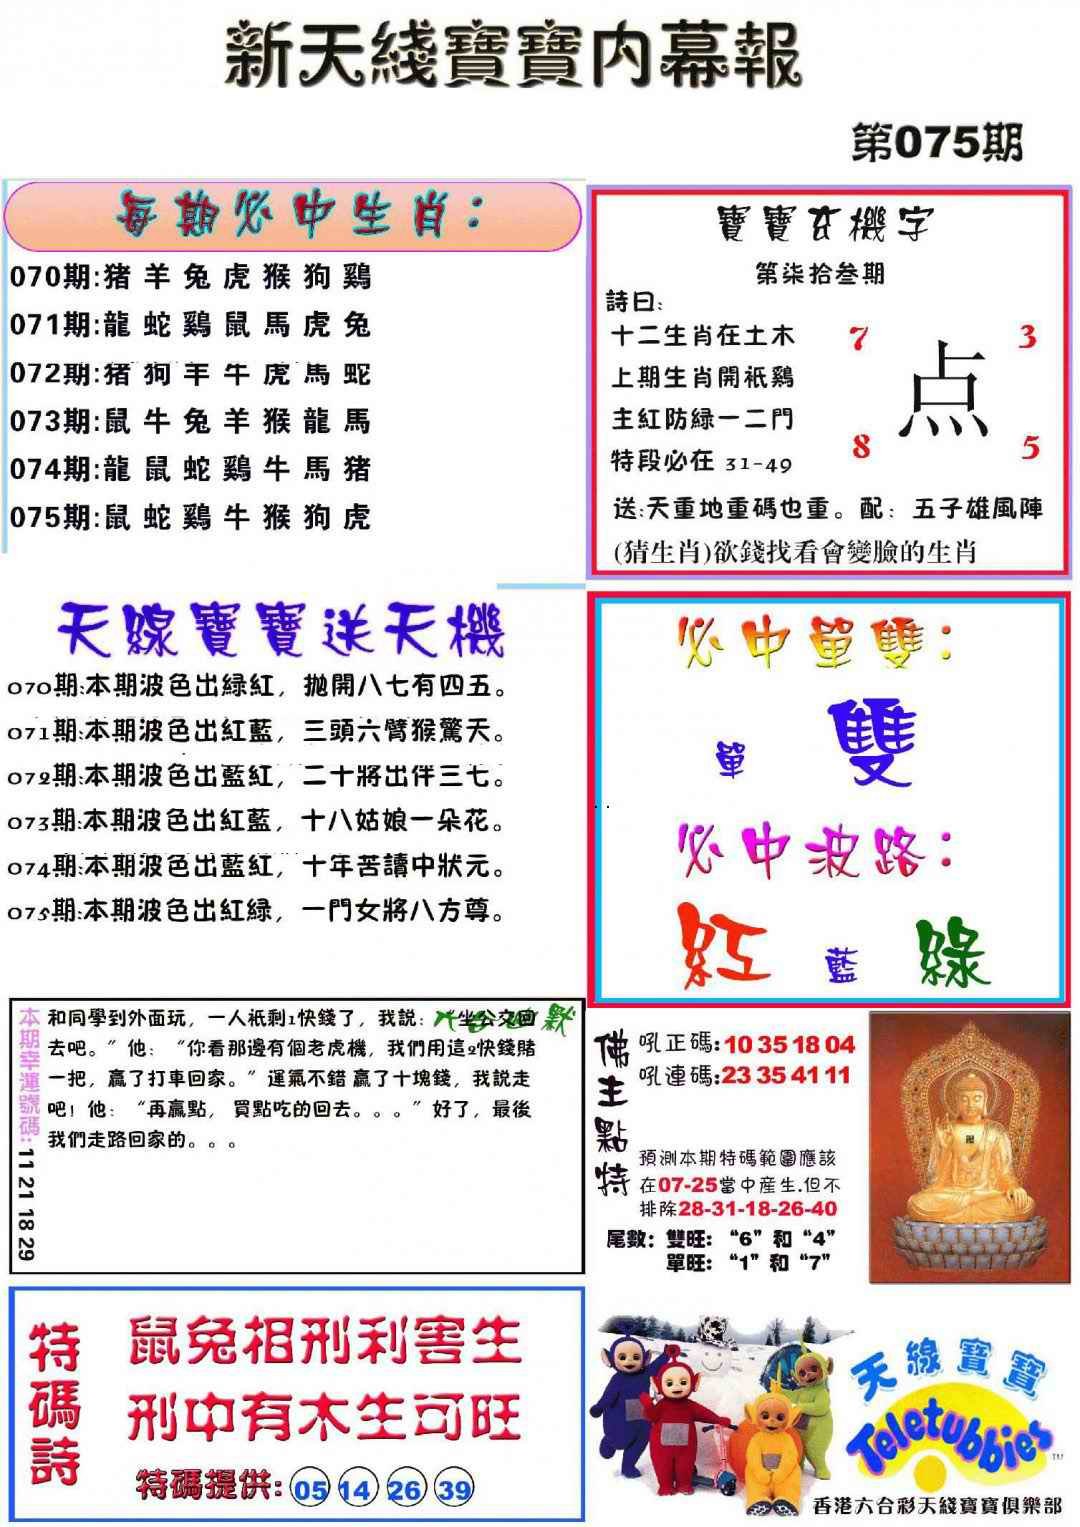 新天綫寶寶内幕報
第075期
每期必中生肖：
070期:猪羊兔虎猴狗鷄
071期:龍蛇鷄鼠馬虎兔
072期:猪狗羊牛虎馬蛇
073期:鼠牛兔羊猴龍馬
074期:龍鼠蛇鷄牛馬猪
075期:鼠蛇鷄牛猴狗虎
寶寶玄機字
第柒拾叁期
詩曰:
十二生肖在土木
上期生肖開祇鷄
主紅防緑一二門
特段必在 31-49
7 3
点
8 5
送:天重地重碼也重。配：五子雄風陣
(猜生肖)欲錢找看會變臉的生肖
天線寶寶送天機
070期:本期波色出緑紅，抛開八七有四五。
071期:本期波色出紅藍，三頭六臂猴驚天。
072期:本期波色出藍紅，二十將出伴三七。
073期:本期波色出紅藍，十八姑娘一朵花。
074期:本期波色出藍紅，十年苦讀中狀元。
075期:本期波色出紅緑，一門女將八方尊。
必中單雙：
單 雙
必中波路：
紅 藍 綠
本期幸運號碼: 11 21 18 29
六合幽默
和同學到外面玩，一人祇剩1快錢了，我説：“坐公交回
去吧。”他：“你看那邊有個老虎機，我們用這2快錢賭
一把，贏了打車回家。”運氣不錯 贏了十塊錢，我説走
吧！他：“再贏點，買點吃的回去。。。”好了，最後
我們走路回家的。。。
佛主點特
吼正碼:10 35 18 04
吼連碼:23 35 41 11
預測本期特碼範圍應該
在07-25當中産生.但不
排除28-31-18-26-40
尾數：雙旺：“6”和“4”
單旺：“1”和“7”
特碼詩
鼠兔相刑利害生
刑中有木生可旺
特碼提供: 05 14 26 39
天線寶寶
Teletubbies
TM
香港六合彩天綫寶寶俱樂部